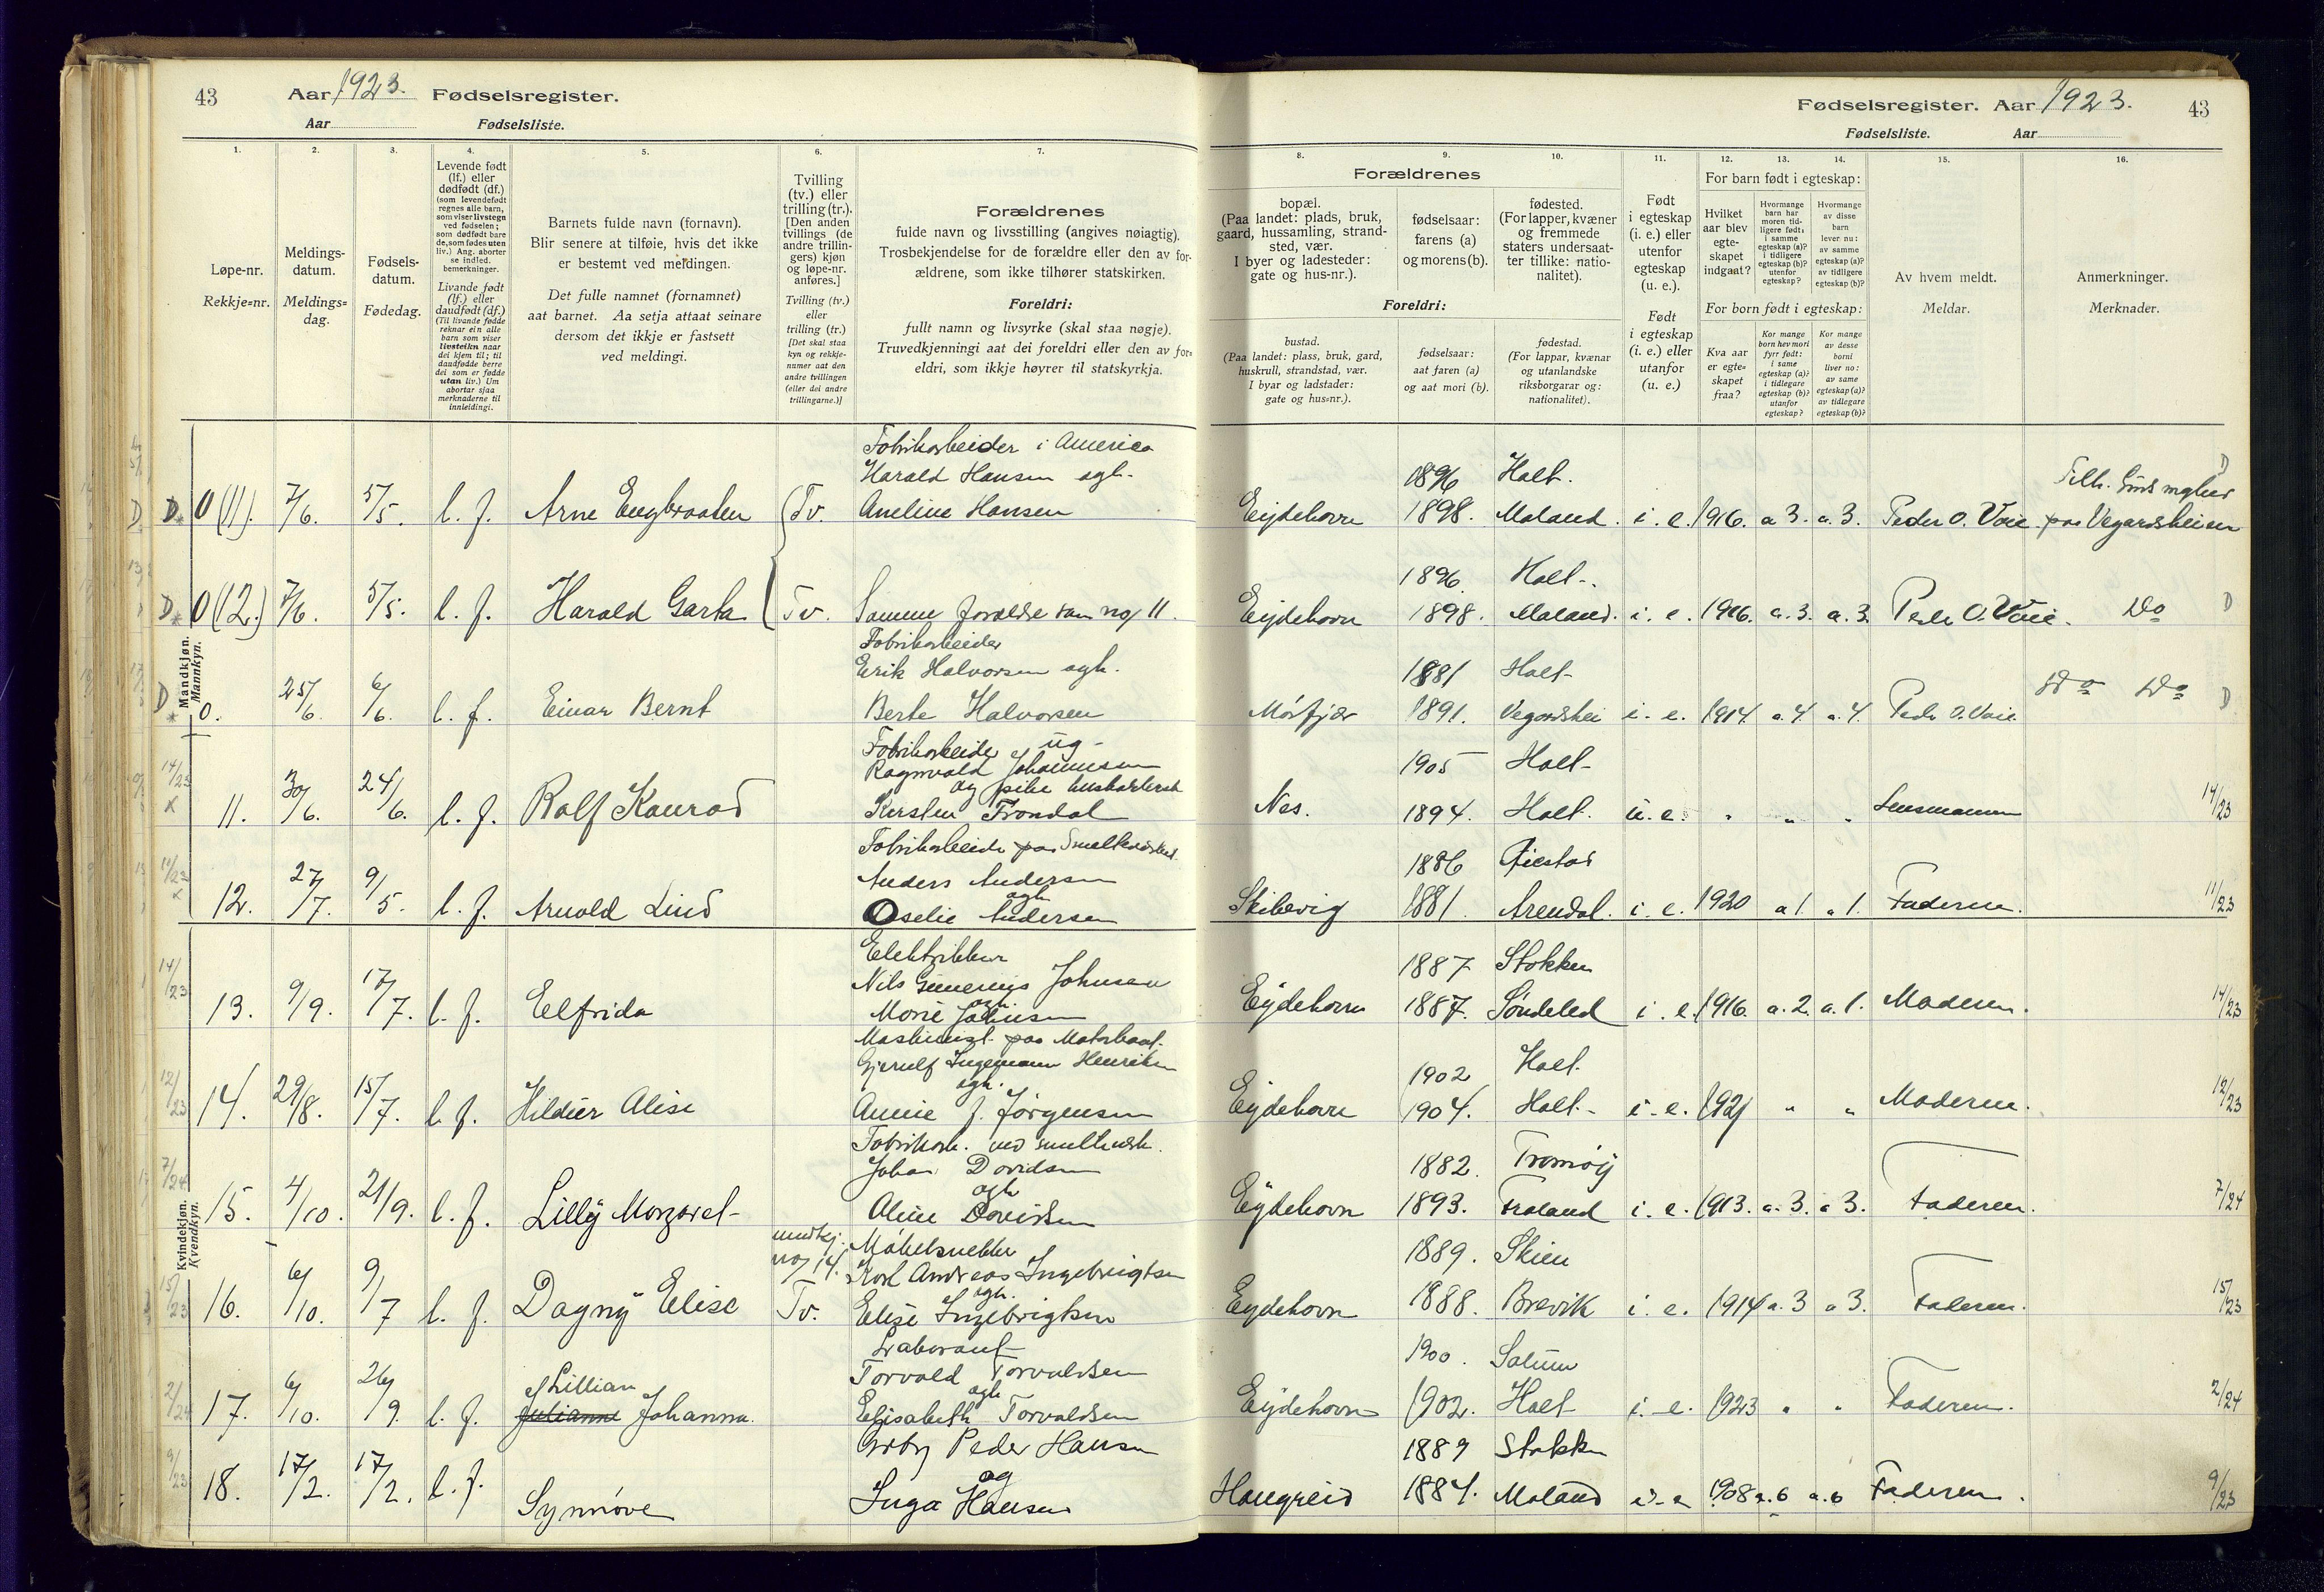 43 Aar 1923. Fødselsregister.
Aar Fødselsliste.
Fødselsregister. Aar 1923. 43
Fødselsliste. Aar
1. 2. 3. 4. 5. 6. 7.
Løpe-nr.
Rekkje=nr.
Meldings-
datum.
Meldings=
dag.
Fødsels-
datum.
Fødedag.
Levende født
(lf.) eller
dødfødt (df.)
(som levendefødt
regnes alle barn,
som viser livstegn
ved fødselen;
som dødfødt bare
de, som fødes uten
liv.) Ang. aborter
se indled.
bemerkninger.
Livande født
(lf.) eller
daudfødt (df.)
(Til livande fødde
reknar ein alle
barn som viser
livsteikn naar
dei kjem til; til
daudfødde berre
dei som er fødde
utan liv.) Um
abortar sjaa
merknaderne til
innleidingi.
Barnets fulde navn (fornavn).
Blir senere at tilføie, hvis det ikke
er bestemt ved meldingen.
Det fulle namnet (fornamnet)
aat barnet. Aa setja attaat seinare
dersom det ikkje er fastsett
ved meldingi.
Tvilling
(tv.) eller
trilling (tr.).
[Den anden
tvillings (de
andre trillin-
gers) kjøn
og løpe-nr.
anføres.]
Tvilling (tv.)
eller
trilling (tr.)
[Det skal staa
kyn og rekkje-
numer aat den
andre tvillingen
(eller dei andre
trillingarne.)]
Forældrenes
fulde navn og livsstilling (angives nøiagtig).
Trosbekjendelse for de forældre eller den av for-
ældrene, som ikke tilhører statskirken.
Foreldri:
fullt namn og livsyrke (skal staa nøgje).
Truvedkjenningi aat dei foreldri eller den av for-
eldri, som ikkje høyrer til statskyrkja.
8. 9. 10. 11. 12. 13. 14. 15. 16.
Forældrenes
bopæl.
(Paa landet: plads, bruk,
gaard, hussamling, strand-
sted, vær.
I byer og ladesteder:
gate og hus-nr.).
fødselsaar:
farens (a)
og morens (b).
fødested.
(For lapper, kvæner
og fremmede
staters undersaat-
ter tillike: natio-
nalitet).
Foreldri:
bustad.
(Paa landet: plass, bruk, gard,
huskrull, strandstad, vær.
I byar og ladstader:
gate og hus=nr.).
fødselsaar:
aat faren (a)
og aat mori (b).
fødestad.
(For lappar, kvænar
og utanlandske
riksborgarar og:
nationalitet).
Født
i egteskap
(i. e.) eller
utenfor
egteskap
(u. e.).
Født
i egteskap
(i. e.) eller
utanfor
(u. e.)
For barn født i egteskap:
Hvilket
aar blev
egte-
skapet
indgaat?
Hvormange
barn har
moren tid-
ligere født:
i samme
egteskap (a)?
i tidligere
egteskap (b)?
utenfor
egteskap?
Hvormange
av disse
barn
lever nu:
av samme
egteskap (a)?
av tidligere
egteskap (b)?
For born født i egteskap:
Kva aar
er egte=
skapet
fraa?
Kor mange
born hev mori
fyrr født:
i same
egteskap (a)?
i tidlegare
egteskap (b)?
utanfor
egteskap?
Kor mange
av desse
borni
liver no:
av same
egteskap (a)?
av tidlegare
egteskap (b)?
Av hvem meldt.
Meldar.
Anmerkninger.
Merknader.
Mandkjøn.
Mannkyn.
Fabrikarbeider i America
Harald Hansen ogh.
D. 0(11). 7/6. 5/5. l. f. Arne Engbraaten (Tv. Aneline Hansen
1896 Holt.
Eydehavn 1898. Moland. i. e. 1916. a 3. a. 3. Peder O. Voie paa Vegardsheien D
D 0(12.) 7/6. 5/5. l. f. Harald Garta (Tv. Samme forældre som no/ 11.
1896. Holt.
Eydehavn 1898. Moland. i. e. 1916. a. 3. a. 3. Peder O. Voie. Do D
Fabrikarbeider
Erik Halvorsen ogh.
D 0. 25/6. 6/6. l. f. Einar Bernt Berte Halvorsen
1881 Holt
1891. Vegardshei i. e. 1914. a. 4. a. 4. Peder O. Voie Do Do D
Fabrikarbeider ug.
Ragnvald Johannesen
og pike
14/23 11. 30/6. 24/6. l. f. Rolf Konrad Kirsten Trondal
1905 Holt
Nes. 1894. Holt. u. e. " " " Lensmannen 14/23
Fabrikarbeider paa Smelteverket.
Anders Andersen
ogh
11/23 12. 27/7. 9/5. l. f. Arnold Lind Oselie Andersen
1886
Skibevig 1881. Arendal. i. e. 1920 a 1. a 1. Faderen. 11/23
Kvindekjøn.
Kvendkyn.
Elektriker
Nils Johnsen
ogh.
14/23 13. 9/9. 17/7. l. f. Elfrida Marie Johnsen
1887 Stokken
Eydehavn 1887. Søndeled i. e. 1916. a. 2. a. 1. Moderen. 14/23
Maskinist paa Motorbaat.
Gjerulf Ingemann Henriksen
ogh.
12/23 14. 29/8. 15/7. l. f. Hildur Alise Annie J. Jørgensen
1902 Holt.
Eydehavn 1904. Holt. i. e. 1921 " " Moderen. 12/23
Fabrikarb. ved smelteverk.
Johan Davidsen
ogh
7/24 15. 4/10. 21/9. l. f. Lilly Margaret Aline Davidsen
1882. Tromøy
Eydehavn 1893. Froland i. e. 1913. a. 3. a 3. Faderen. 7/24
Møbelsnekker
no/ 14. Karl Andreas Ingebrigtsen
ogh.
15/23 16. 6/10. 9/7 l. f. Dagny Elise Tv. Elise Ingebrigtsen
1889. Skien
Eydehavn 1888. Brevik i. e. 1914 a. 3 a 3. Faderen. 15/23
Laborant
Torvald Torvaldsen
Lillian ogh
2/24 17. 6/10. 26/9. l. f. Julianne Johanna. Elisabeth Torvaldsen
1900. Solum
Eydehavn 1902. Holt i. e. 1923 " " Faderen. 2/24
Peder Hansen
og
9/23 18. 17/2. 17/2. l. f. Synnøve Inga Hansen
1889 Stokken
Haugreid 1884. Moland i. e 1908 a. 6 a. 6 Faderen. 9/23